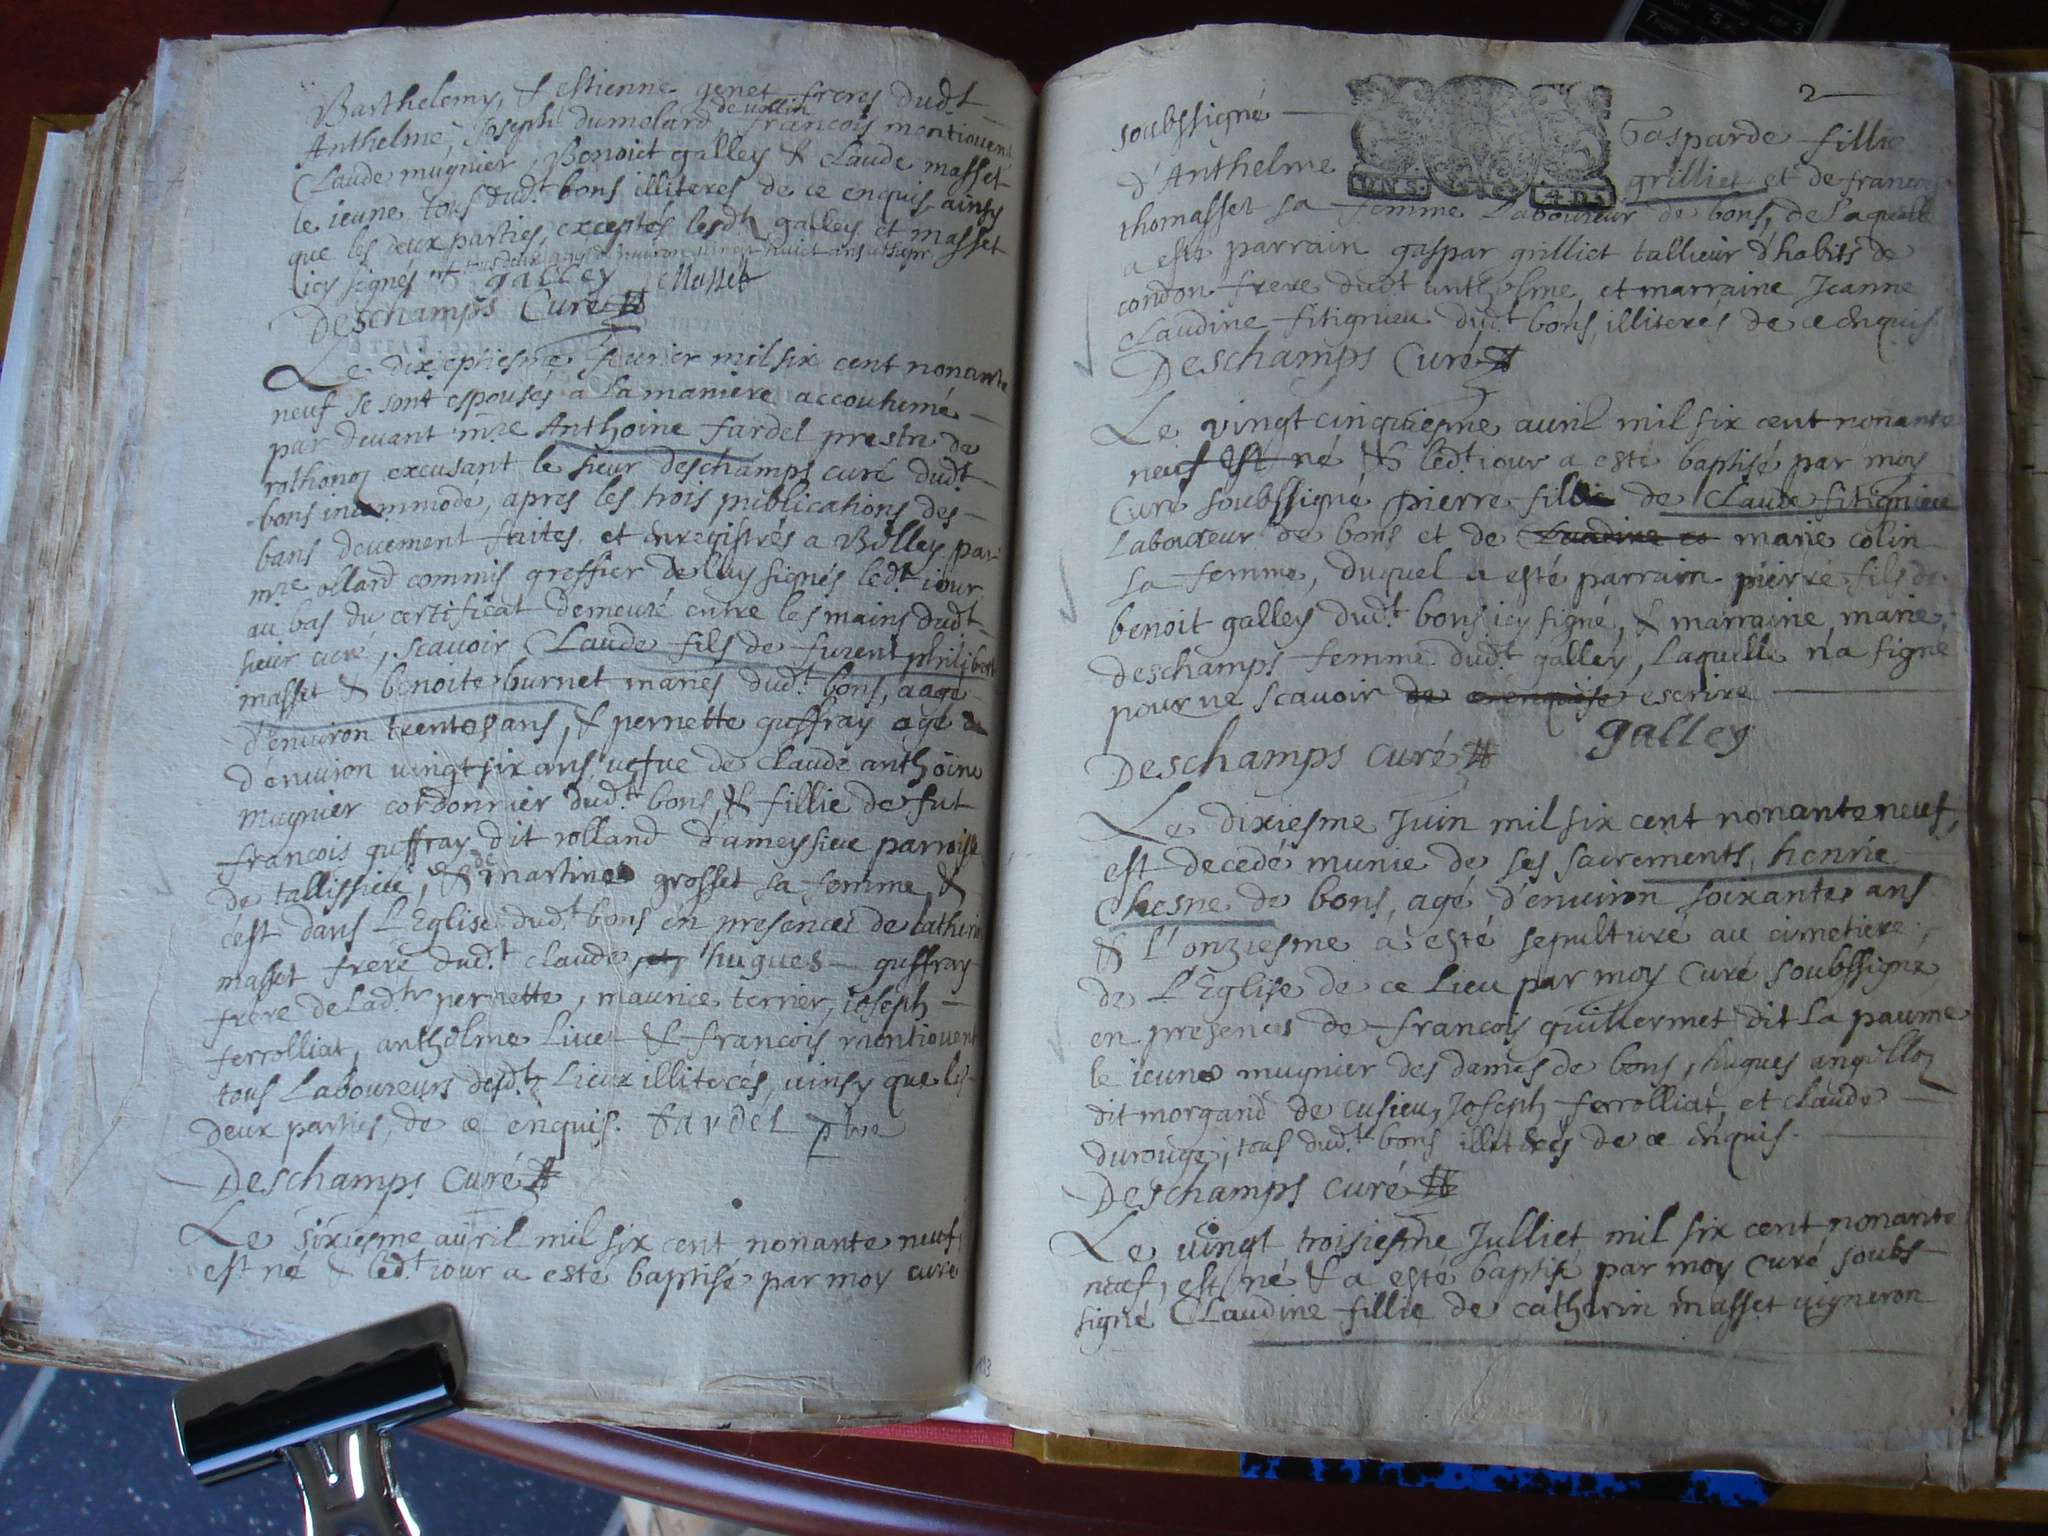 Barthelemy, & estienne genet freres dud.t
Anthelme, Joseph dumolard de vollin francois montiouent
Claude mugnier, Benoict galley & Claude masset
le ieune tous dud.t bons illiteres de ce enquis ainsy
que les deux parties, exceptés lesd.ts galley et masset
tous deux agés d'environ vingt huict ans
icy signés galley CMasset
Deschamps Curé
Le dixseptiesme feurier mil six cent nonante
neuf se sont espousés a la maniere accoutumé
par deuant m.re Anthoine fardel prestre de
rothonoz excusant le sieur deschamps curé dud.t
bons incommodé, apres les trois publications des
bans deuement faites, et enregistrés a Belley par
m.re ollard commis greffier de luy signés led.t iour
au bas du certificat demeuré entre les mains dud.t
sieur curé, scauoir Claude fils de furent philibert
masset & benoite burnet mariés dud.t bons, aagé
d'enuiron trente ans, & pernette guffray agé
d'enuiron vingt six ans vefue de Claude anthoine
mugnier cordonnier dud.t bons, & fillie de fut
francois guffray dit rolland d'ameysieu parroisse
de tallissieu, & de martine grosset sa femme, &
c'est dans l'Eglise dud.t bons en presences de catherin
masset frere dud.t claude, et hugues guffray
frere de lad.te pernette, maurice terrier, ioseph
ferrolliat, anthelme Liuet & francois montiouent
tous Laboureurs desd.ts Lieux illiterés, ainsy que les
deux parties, de ce enquis. fardel pbre
Deschamps Curé
Le sixiesme auril mil six cent nonante neuf
est né & led.t iour a esté baptisé par moy curé
2
soubssigné Gasparde fillie
d'Anthelme grilliet et de francoyse
thomasset sa femme Laboureur de bons, de Laquelle
a esté parrain gaspar grilliet tallieur d'habits de
condon frere dud.t anthelme, et marraine Jeanne
Claudine fitignieu dud.t bons, illiterés de ce enquis
Deschamps Curé
Le vingtcinquiesme auril mil six cent nonante
neuf est né & led.t iour a esté baptisé par moy
Curé soubssigné pierre fils de Claude fitignieu
Laboureur de bons et de Claudine co marie colin
sa femme, duquel a esté parrain pierre fils de
benoit galley dud.t bons icy signé, & marraine marie
deschamps femme dud.t galley, Laquelle n'a signé
pour ne scauoir de ce enquise escrire
galley
Deschamps curé
Le dixiesme Juin mil six cent nonante neuf,
est decedé munie de ses sacrements, henrie
Chesne de bons, agé d'enuiron soixante ans
& l'onziesme a esté sepulturé au cimetiere
de l'Eglise de ce Lieu par moy Curé soubssigné,
en presences de francois guillermet dit la paume
le ieune mugnier des dames de bons, hugues anguilloz
dit morgand de cusieu, Joseph ferrolliat, et claude
durouge, tous dud.t bons illiterés de ce enquis.
Deschamps curé
Le vingt troisiesme Julliet mil six cent nonante
neuf, est né & a esté baptisé par moy Curé soubs
signé Claudine fillie de catherin masset vigneron